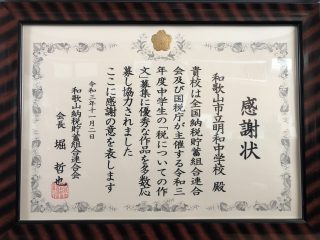 感謝状
和歌山市立明和中学校 殿
貴校は全国納税貯蓄組合連合
会及び国税庁が主催する令和三
年度中学生の「税についての作
文」募集に優秀な作品を多数応
募し協力されました
ここに感謝の意を表します
令和三年十一月二日
和歌山納税貯蓄組合連合会
会長 堀 哲也